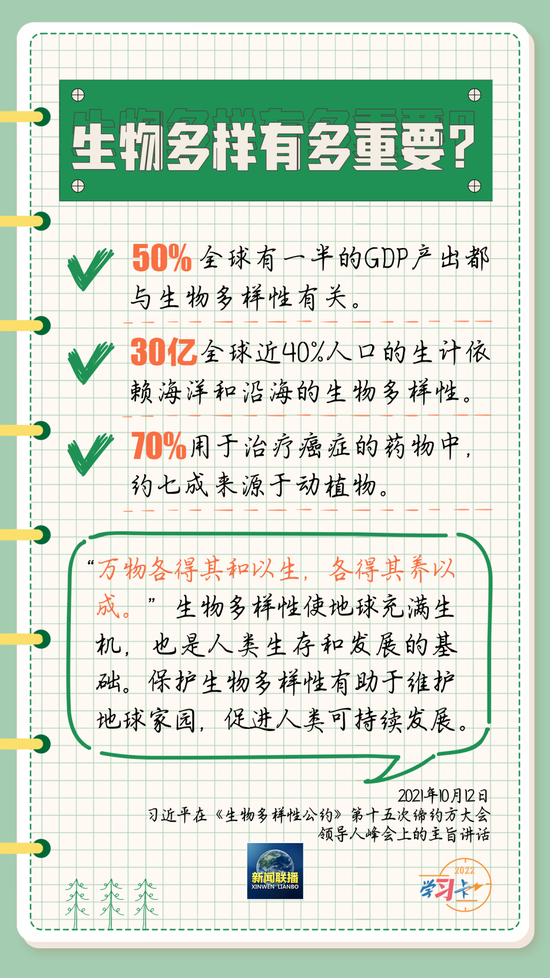 生物多样有多重要?
50% 全球有一半的GDP产出都
与生物多样性有关。
30亿 全球近40%人口的生计依
赖海洋和沿海的生物多样性。
70% 用于治疗癌症的药物中，
约七成来源于动植物。
“万物各得其和以生，各得其养以
成。” 生物多样性使地球充满生
机，也是人类生存和发展的基
础。保护生物多样性有助于维护
地球家园，促进人类可持续发展。
2021年10月12日
习近平在《生物多样性公约》第十五次缔约方大会
领导人峰会上的主旨讲话
新闻联播
XINWEN LIANBO
2022
学习卡